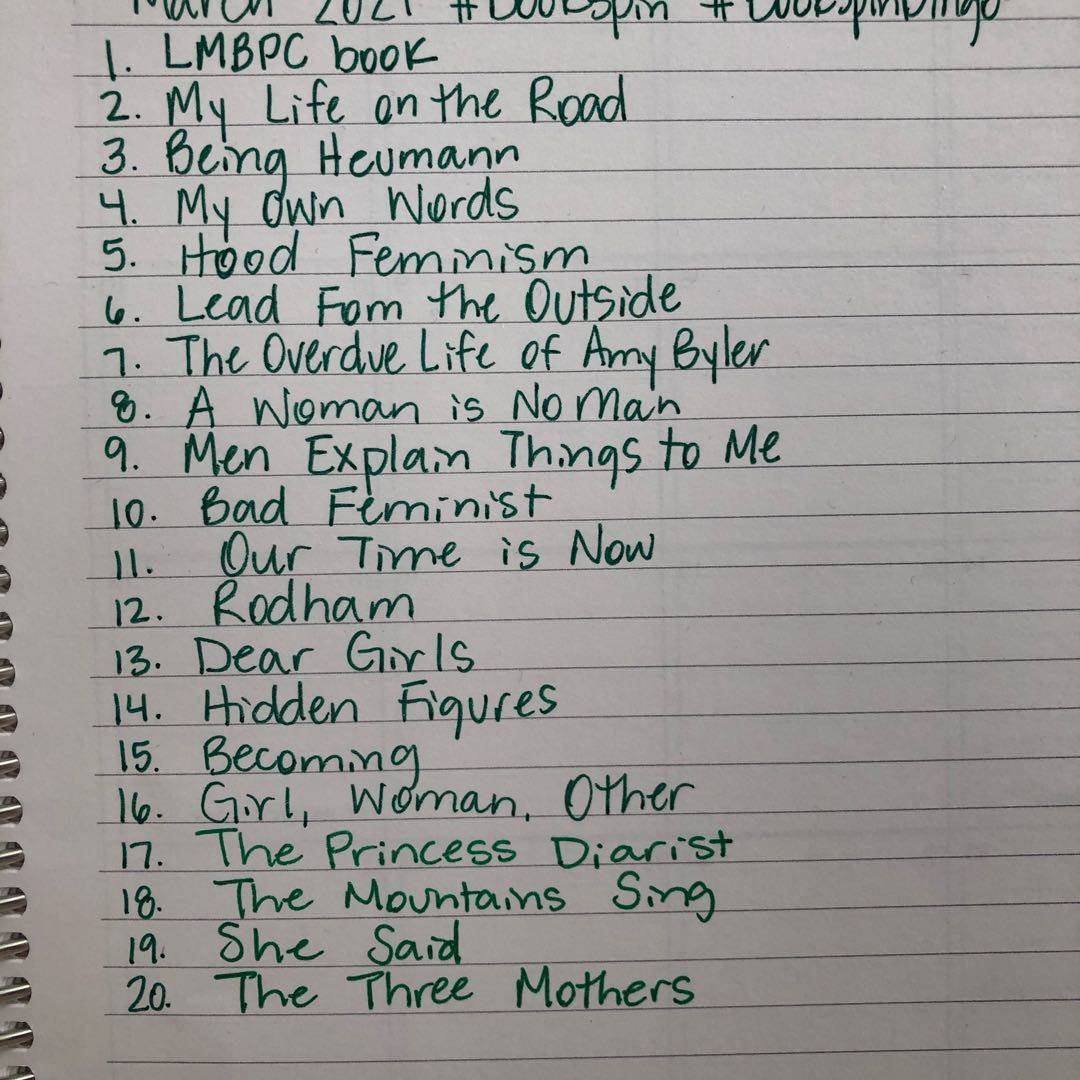 March 2021 #bookspin #bookspinbingo
1. LMBPC book
2. My Life on the Road
3. Being Heumann
4. My Own Words
5. Hood Feminism
6. Lead Fom the Outside
7. The Overdue Life of Amy Byler
8. A Woman is No Man
9. Men Explain Things to Me
10. Bad Feminist
11. Our Time is Now
12. Rodham
13. Dear Girls
14. Hidden Figures
15. Becoming
16. Girl, Woman, Other
17. The Princess Diarist
18. The Mountains Sing
19. She Said
20. The Three Mothers